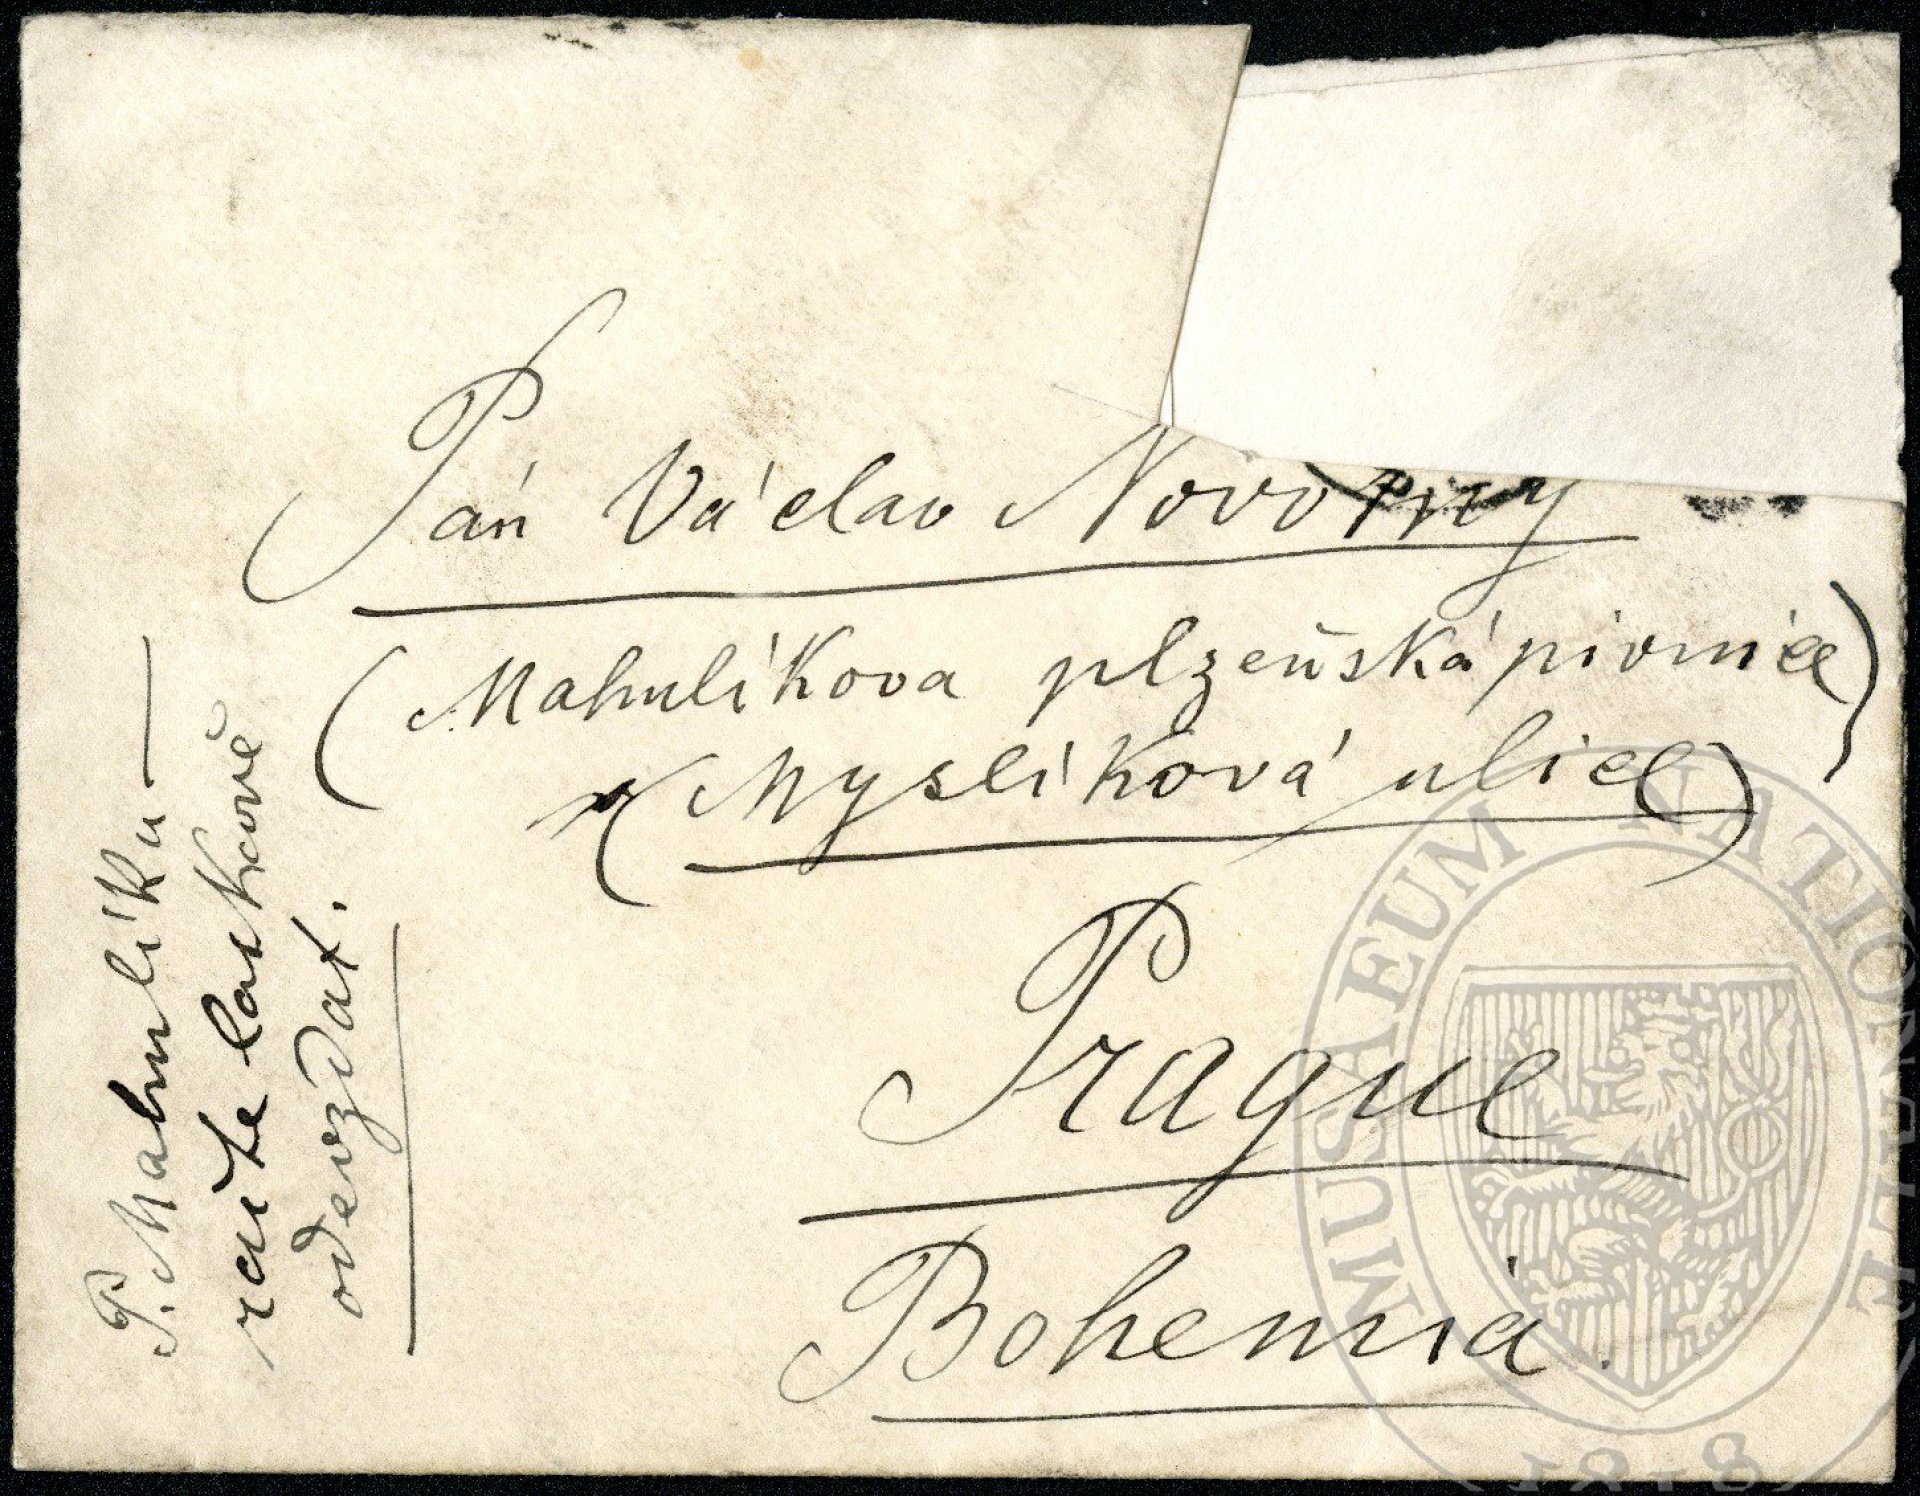 Pán Václav Novotný
(Mahulíkova plzeňská pivnice)
v (Myslíková ulice)
Prague
Bohemia.
P. Mahulíku –
račte laskavě
odevzdat.
MUSAEUM NATIONALE
1818